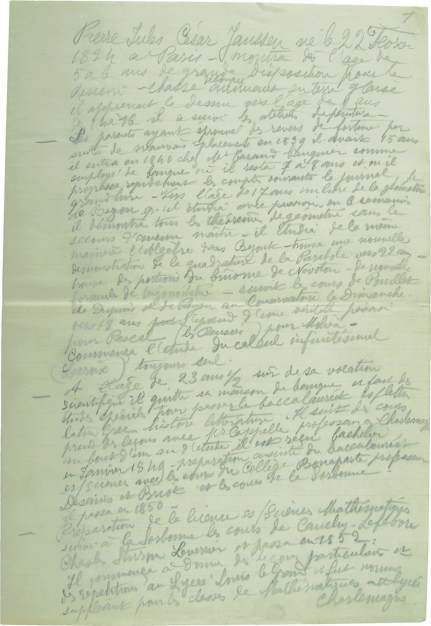 1
Pierre Jules César Janssen né le 22 Février
1824 à Paris - montra dès l'âge de
5 à 6 ans de grandes dispositions pour le
dessin - animaux en terre glaise
il apprenait le dessin vers l'âge de ans
il a suivi les ateliers de peinture -
Ses parents ayant éprouvé des revers de fortune par
suite de mauvais placement en 1839 il avait 15 ans
il entra en 1840 chez banquier comme
employé de banque où il resta 7 à 8 ans et où il
les comptes courants le journal, le
grand livre - Vers l'âge de 17 ans un livre de la géométrie
de qu'il étudia avec passion, en 8 semaines
il démontra tous les théorèmes de géométrie sans le
secours d'aucun maître - il étudia de la même
manière l'algèbre dans - trouva une nouvelle
démonstration de la quadrature de la Parabole vers 22 ans -
du binome de Newton - de nouvelles
formules de trigonométrie - suivit les cours de Pouillet
de Dupin et de au Conservatoire le Dimanche
vers 18 ans
pour Pascal pour
Commença l'étude du calcul infinitésimal
toujours seul.
A l'âge de 23 ans 1/2 sûr de sa vocation
scientifique il quitta sa maison de banque et fait des
études spéciales pour passer le baccalauréat es/lettres
latin grec histoire littérature. Il suivit des cours
prend des leçons avec Mr Cappelle professeur à Charlemagne
au bout d'un an d'étude il est reçu bachelier
en Janvier 1849 - préparation ensuite du baccalauréat
es/sciences avec les cours du Collège Bonaparte professeurs
et Briot et les cours de la Sorbonne
le passa en 1850 -
Préparation de la licence es/Sciences Mathématiques
suivit à la Sorbonne les cours de Cauchy - Lefébure
Chasles Sturm Leverrier et passa en 1852 :
Il commença à donner des leçons particulières et
des répétitions au Lycée Louis le Grand et fut nommé
suppléant pour les classes de Mathématiques au Lycée
Charlemagne